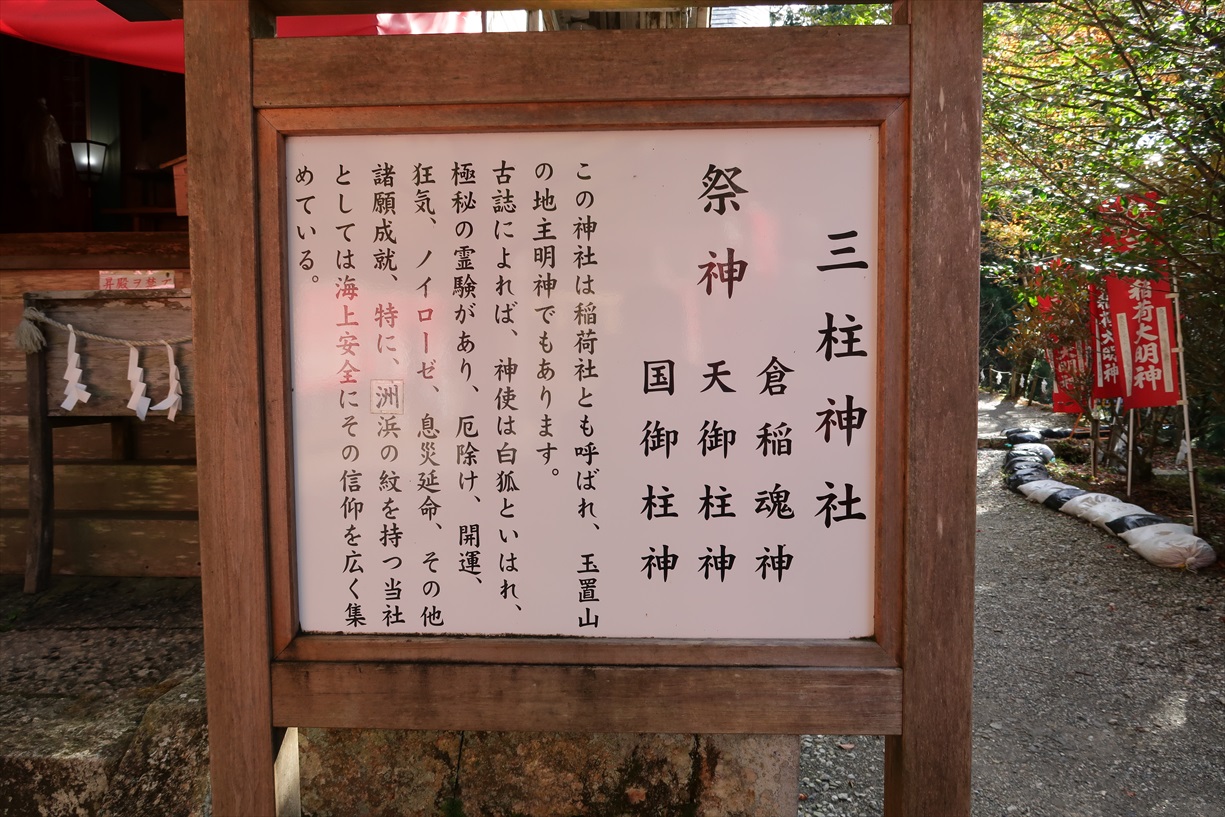 三柱神社
祭神
倉稲魂神
天御柱神
国御柱神
この神社は稲荷社とも呼ばれ、玉置山
の地主明神でもあります。
古誌によれば、神使は白狐といはれ、
極秘の霊験があり、厄除け、開運、
狂気、ノイローゼ、息災延命、その他
諸願成就、特に、洲浜の紋を持つ当社
としては海上安全にその信仰を広く集
めている。
昇殿ヲ禁ズ
稲荷大明神
稲荷大明神
大明神